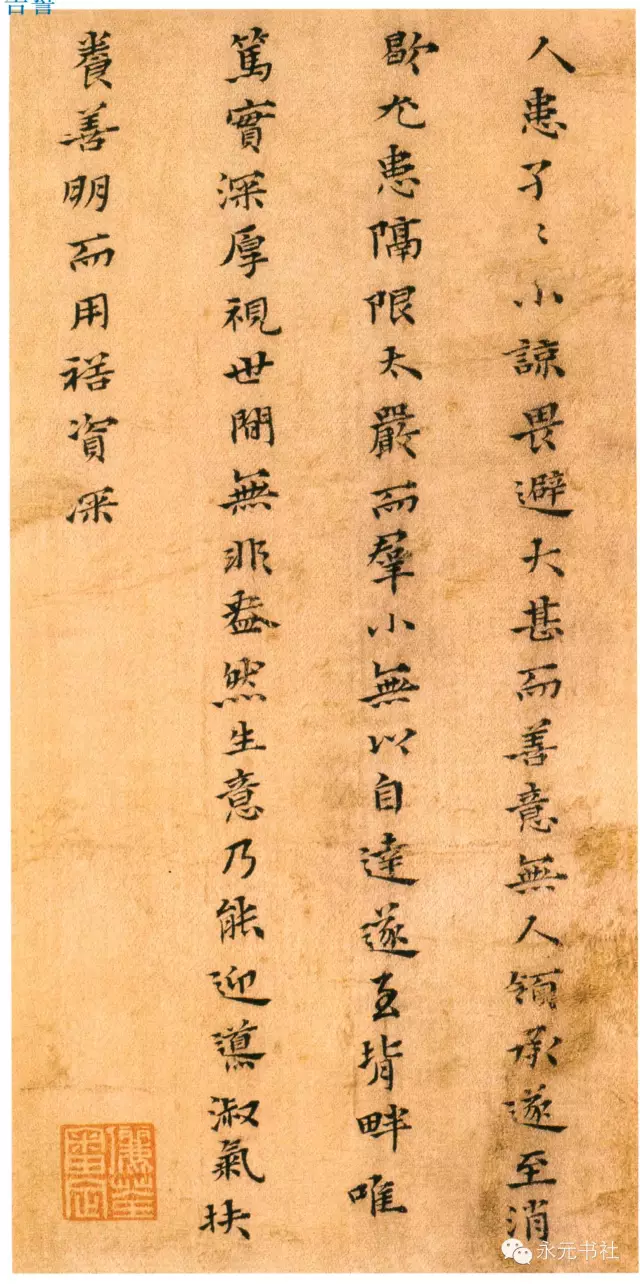 人患孑〻小諒畏避大甚而善意無人領承遂至消
歇尤患隔限太嚴而羣小無以自達遂至背畔唯
篤實深厚視世間無非盎然生意乃能迎導淑氣扶
養善明而用裕資深
永元书社